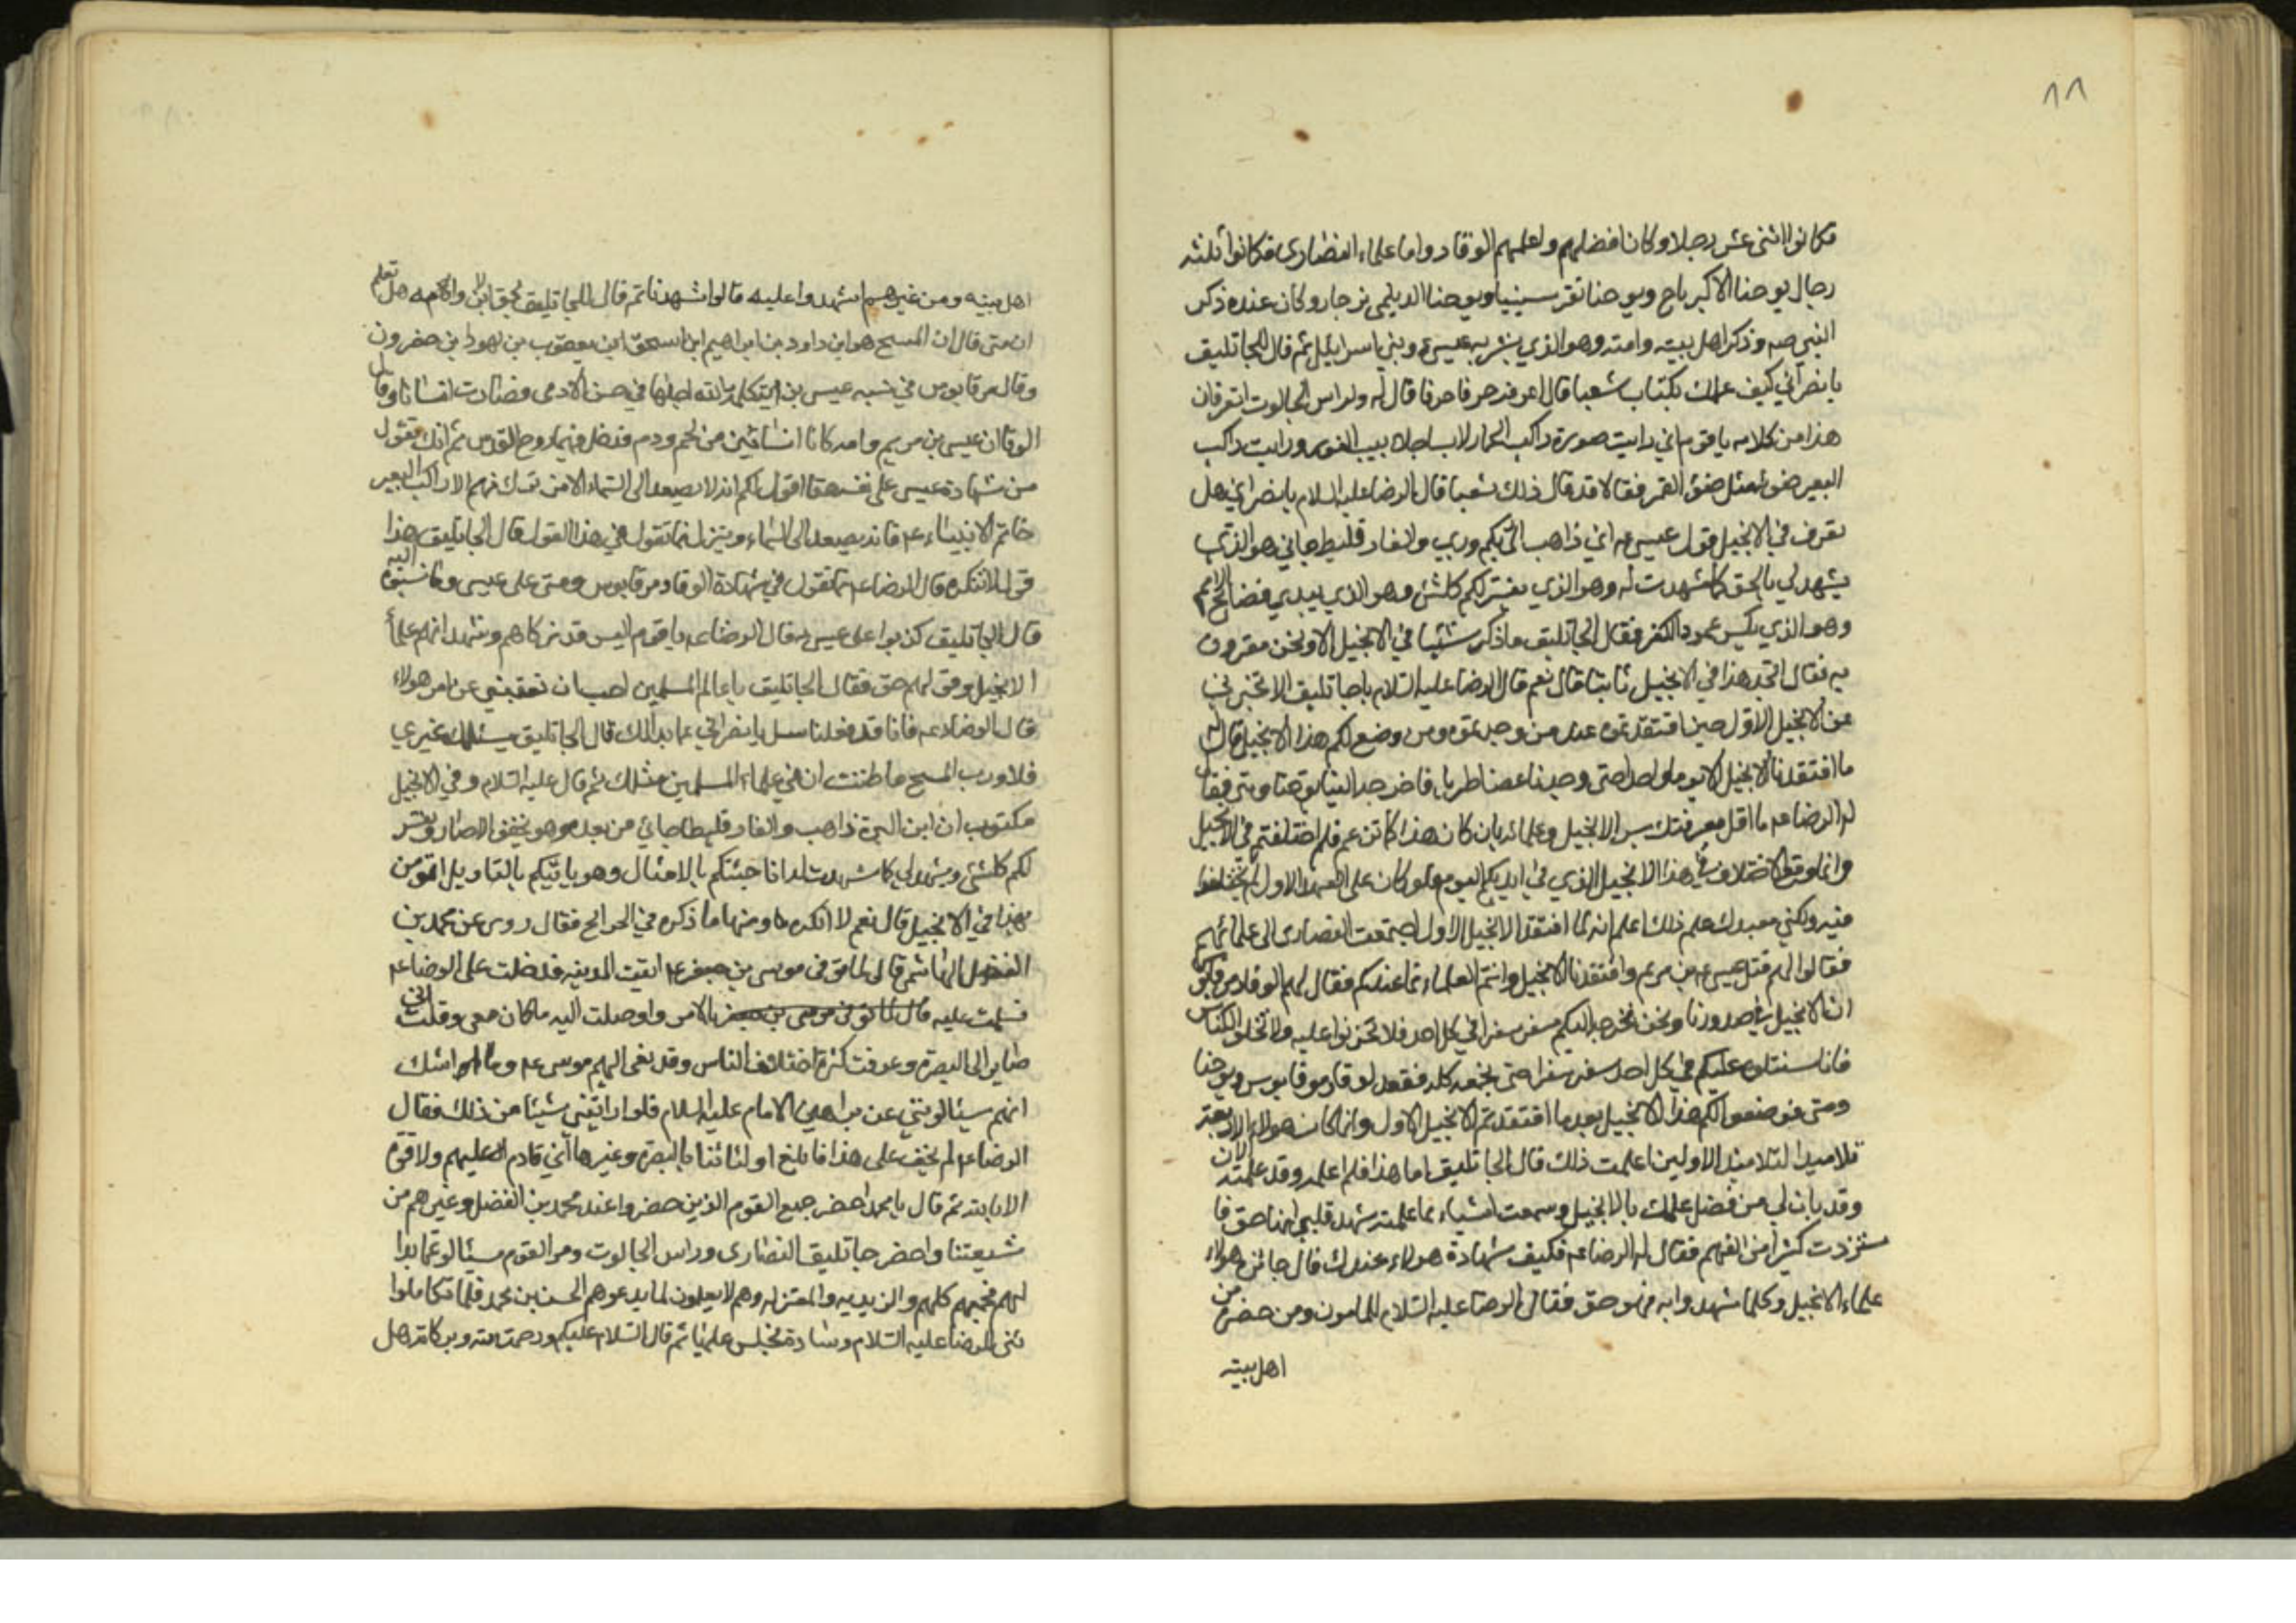 ١١
فكانوا اثنى عشر رجلا وكان افضلهم واعلمهم الوقا دواما علماء النصارى فكانوا ثلثه
رجال يوحنا الاكبر باج ويوحنا بقرسينيا ويوحنا الديلمى بزجار وكان عنده ذكر
النبي صه وذكر اهل بيته وامته وهو الذي بشر به عيسى وبني اسرائيل ثم قال للجاتليق
يا نصراني كيف علمك بكتاب شعيا قال اعرفه حرفا حرفا قال له ولراس الجالوت اتعرفان
هذا من كلامه يا قوم اني رايت صورة راكب الحمار لابسا جلابيب النور ورايت راكب
البعير ضوئه مثل ضوء القمر فقالا قد قال ذلك شعيا قال الرضا عليه السلام يا نصراني هل
تعرف في الانجيل قول عيسى اني ذاهب الى ربكم وربي والفار قليط جاني هو الذي
يشهد لي بالحق كما شهدت له وهو الذي يفسر لكم كلشئ وهو الذي يبدي فضائح الامم
وهو الذي يكسر عمود الكفر فقال الجاتليق ما ذكر شيئا في الانجيل الا ونحن مقرون
به فقال اتجد هذا في الانجيل ثابتا قال نعم قال الرضا عليه السلام يا جاتليق الا تخبرني
عن الانجيل الاول حين افتقدتموه عند من وجدتموه ومن وضع لكم هذا الانجيل قال له
ما افتقدنا الانجيل الا يوما واحدا حتى وجدناه غضا طريا فاخرجه الينا يوحنا ومتى فقال
له الرضا عه ما اقل معرفتك بسر الانجيل وعلمائه فان كان هذا كما تزعم فلم اختلفتم في الانجيل
وانما وقع الاختلاف في هذا الانجيل الذي في ايديكم اليوم فلو كان على العهد الاول لم تختلفوا
فيه ولكني مفيدك علم ذلك اعلم انه لما افتقد الانجيل الاول اجتمعت النصارى الى علمائهم
فقالوا لهم قتل عيسى بن مريم وافتقدنا الانجيل وانتم العلماء فما عندكم فقال لهم الوقا ومرقابوس
ان الانجيل في صدورنا ونحن نخرجه اليكم سفر سفرا في كل احد فلا تحزنوا عليه ولا تخلوا الكنائس
فانا سنتلوه عليكم في كل احد سفر سفرا حتى نجمعه كله فقعد لوقا ومرقابوس ويوحنا
ومتى فوضعوا لكم هذا الانجيل بعد ما افتقدتم الانجيل الاول وانما كان هولاء الاربعة
تلاميذ التلاميذ الاولين اعلمت ذلك قال الجاتليق اما هذا فلم اعلمه وقد علمته الان
وقد بان لي من فضل علمك بالانجيل وسمعت اشياء مما علمته شهد قلبي انها حق فا
ستزدت كثيرا من الفهم فقال له الرضا عه فكيف شهادة هولاء عندك قال جائزة هولاء
علماء الانجيل وكلما شهدوا به فهو حق فقال الرضا عليه السلام للمامون ومن حضره من
اهل بيته
اهل بيته ومن غيرهم اشهدوا عليه قالوا شهدنا ثم قال للجاتليق بحق الابن وامه هل تعلم
ان متى قال ان المسيح هو ابن داود بن ابراهيم ابن اسحق ابن يعقوب بن يهودا بن حضرون
وقال مرقابوس في نسبه عيسى بن مريم كلمة الله احلها في جسد الادمى فصارت انسانا وقال
الوقا ان عيسى بن مريم وامه كانا انسانين من لحم ودم فدخل فيهما روح القدس ثم انك تقول
من شهادة عيسى على نفسه حقا اقول لكم انه لا يصعد الى السماء الا من نزل منها الا راكب البعير
خاتم الانبياء عه فانه يصعد الى السماء وينزل فما تقول في هذا القول قال الجاتليق هذا
قول لا ننكره قال الرضا عه فما تقول في شهادة الوقا ومرقابوس ومتى على عيسى وما نسبوه اليه
قال الجاتليق كذبوا على عيسى فقال الرضا عه يا قوم اليس قد زكاهم وشهد انهم علماء
الانجيل وقولهم حق فقال الجاتليق يا عالم المسلمين احب ان تعفيني عن امر هولاء
قال الرضا عه فانا قد فعلنا سل يا نصراني عما بدا لك قال الجاتليق يسئلك غيري
فلا ورب المسيح ما ظننت ان في علماء المسلمين مثلك ثم قال عليه السلام وفي الانجيل
مكتوب ان ابن البرة ذاهب والفار قليطا جائي من بعده وهو يخفف الاصار ويفسر
لكم كلشئ ويشهد لي كما شهدت له انا جئتكم بالامثال وهو ياتيكم بالتاويل اتؤمن
بهذا في الانجيل قال نعم لا انكره ومنها ما ذكره في الخرائج فقال روى عن محمد بن
الفضل الهاشمي قال لما توفى موسى بن جعفر عه اتيت المدينه فدخلت على الرضا عه
فسلمت عليه بالامر واوصلت اليه ما كان معى وقلت اني
صاير الى البصره وعرفت كثرة اختلاف الناس وقد نعى اليهم موسى عه وما اشك
انهم سيئالونني عن براهين الامام عليه السلام فلو اراتيني شيئا من ذلك فقال
الرضا عه لم يخف على هذا فابلغ اوليائنا بالبصره وغيرها اني قادم عليهم ولا قوه
الا بالله ثم قال يا محمد احضر جميع القوم الذين حضروا عند محمد بن الفضل وغيرهم من
شيعتنا واحضر جاتليق النصارى وراس الجالوت ومر القوم يسئالو عما بدا
لهم فجمعهم كلهم والزيديه والمعتزله وهم لا يعلمون لما يدعوهم الحسن بن محمد فلما تكاملوا
ثنى للرضا عليه السلام وساده فجلس عليها ثم قال السلام عليكم ورحمت الله وبركاته هل